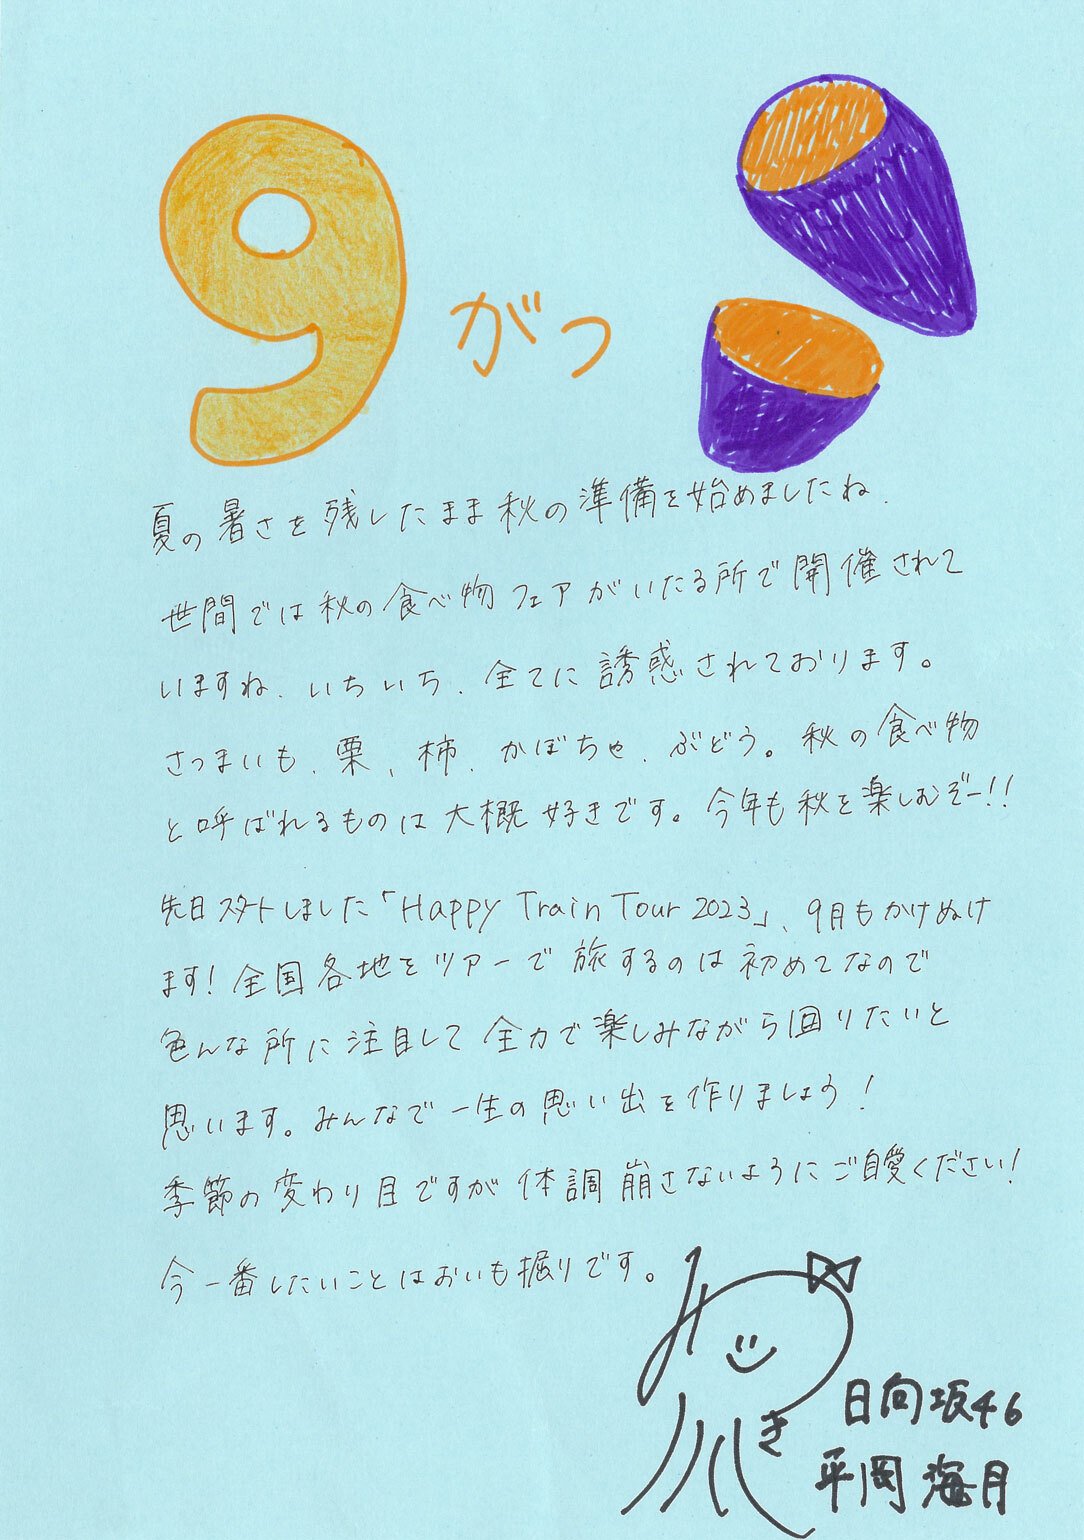 9がつ
夏の暑さを残したまま秋の準備を始めましたね、
世間では秋の食べ物フェアがいたる所で開催されて
いますね、いちいち、全てに誘惑されております。
さつまいも、栗、柿、かぼちゃ、ぶどう。秋の食べ物
と呼ばれるものは大概好きです。今年も秋を楽しむぞー!!
先日スタートしました「Happy Train Tour 2023」、9月もかけぬけ
ます!全国各地をツアーで旅するのは初めてなので
色んな所に注目して全力で楽しみながら回りたいと
思います。みんなで一生の思い出を作りましょう!
季節の変わり目ですが体調崩さないようにご自愛ください!
今一番したいことはおいも掘りです。
みつき
日向坂46
平岡海月